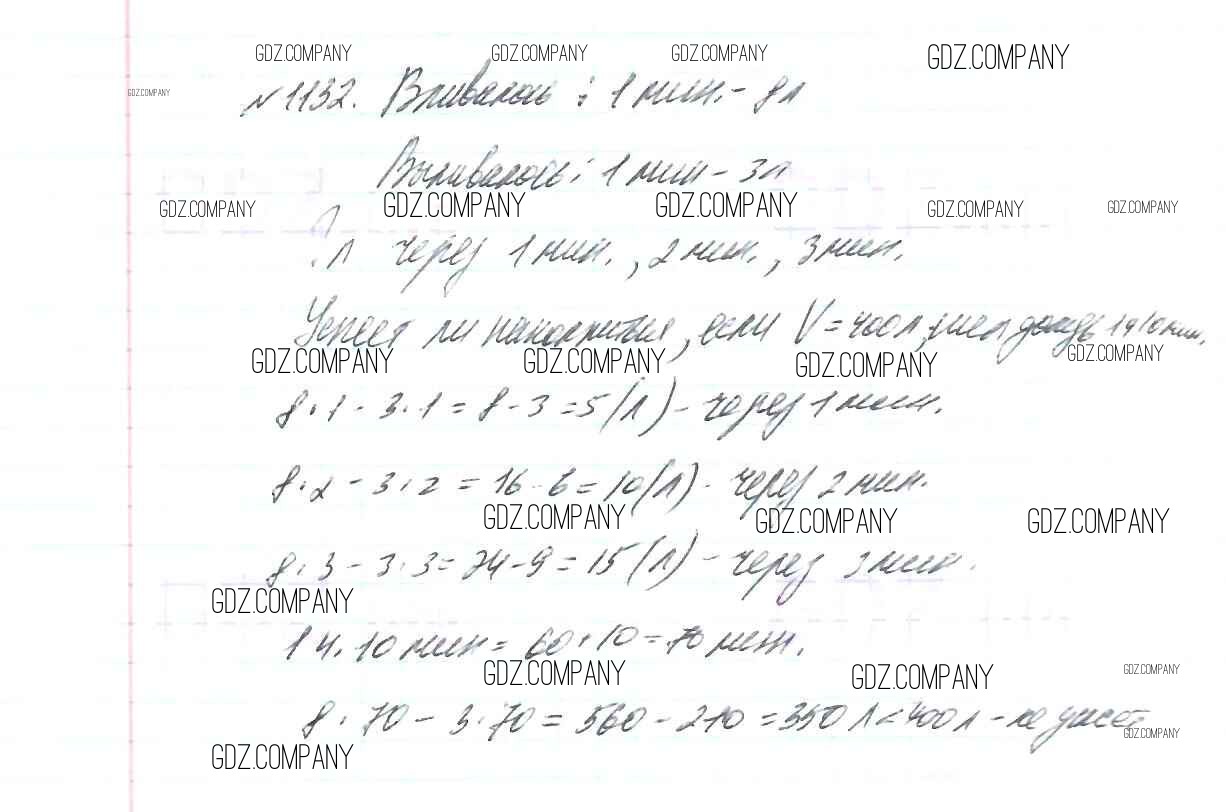 GDZ.COMPANY GDZ.COMPANY GDZ.COMPANY GDZ.COMPANY
GDZ.COMPANY
№1132. Вливалось : 1 мин. - 8л
Выливалось: 1 мин - 3л
GDZ.COMPANY GDZ.COMPANY GDZ.COMPANY GDZ.COMPANY GDZ.COMPANY
? л через 1 мин., 2 мин., 3 мин.
Успеет ли наполниться, если V = 400л, шел дождь 1ч 10мин.
GDZ.COMPANY GDZ.COMPANY GDZ.COMPANY GDZ.COMPANY
8·1 - 3·1 = 8 - 3 = 5 (л) - через 1 мин.
8·2 - 3·2 = 16 - 6 = 10 (л) - через 2 мин.
GDZ.COMPANY GDZ.COMPANY GDZ.COMPANY
8·3 - 3·3 = 24 - 9 = 15 (л) - через 3 мин.
GDZ.COMPANY
1 ч. 10 мин = 60 + 10 = 70 мин.
GDZ.COMPANY GDZ.COMPANY GDZ.COMPANY
8·70 - 3·70 = 560 - 210 = 350 л < 400 л - не успеет
GDZ.COMPANY
GDZ.COMPANY